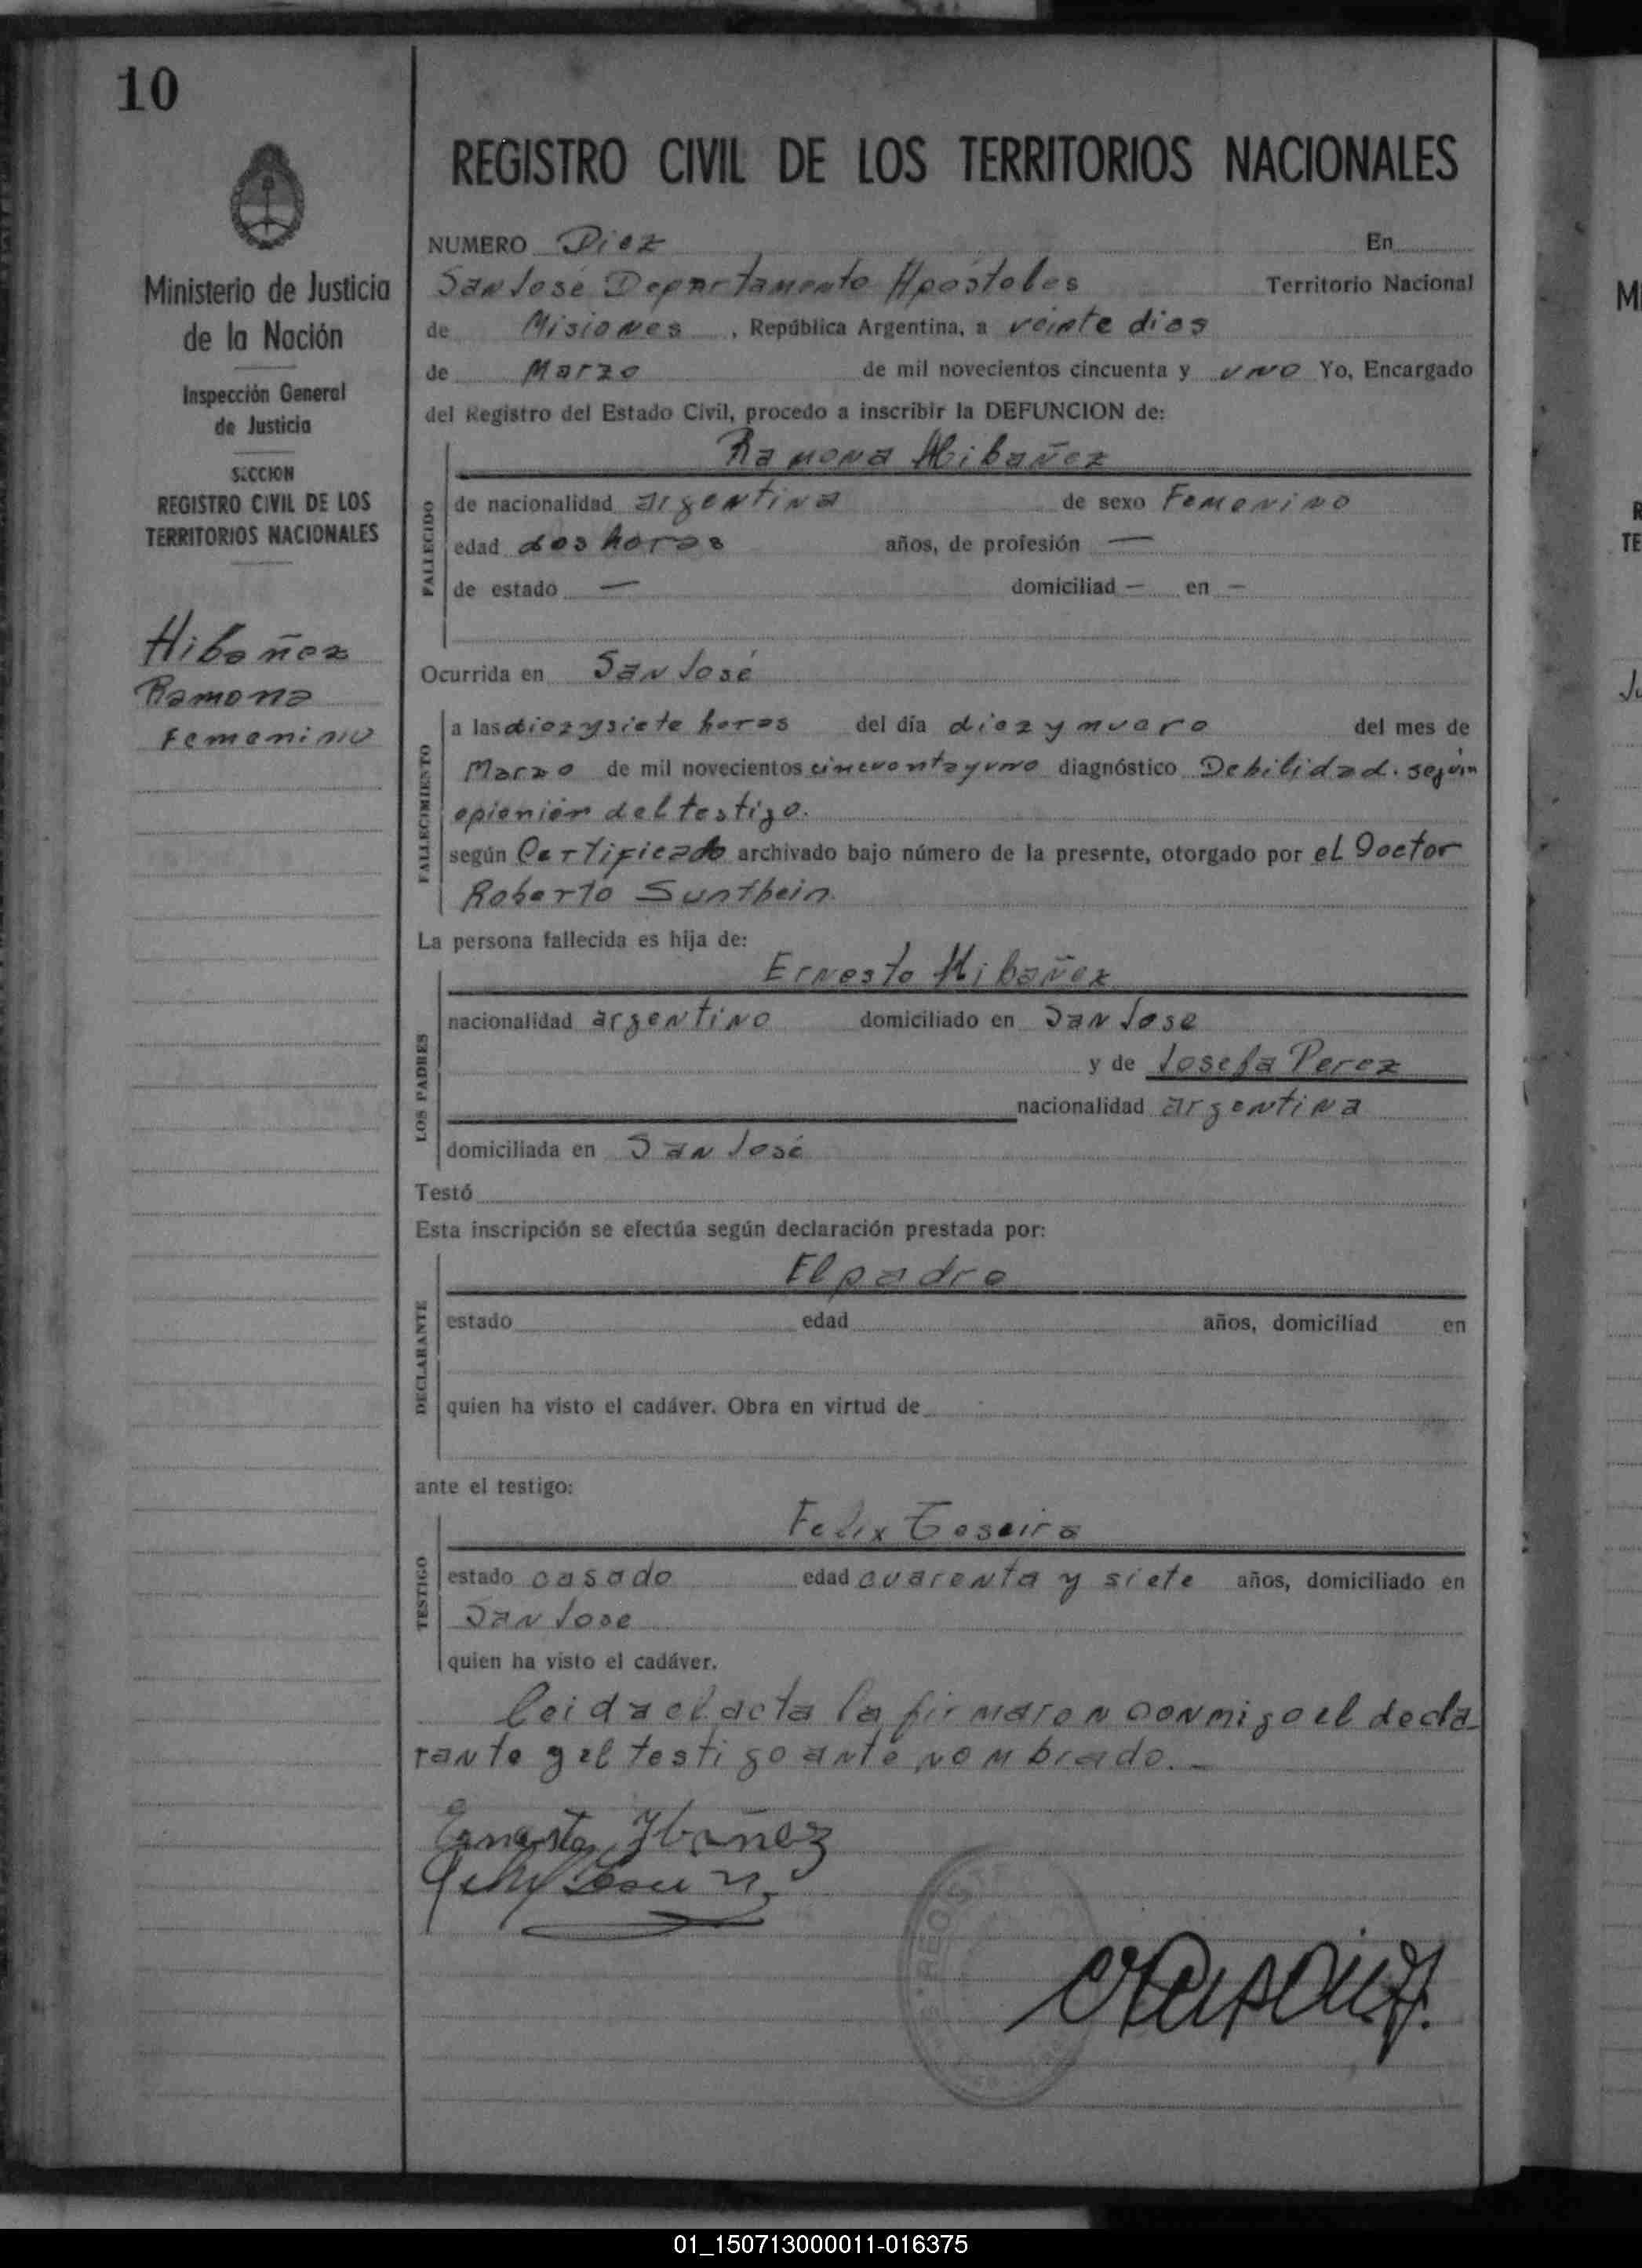 10
REGISTRO CIVIL DE LOS TERRITORIOS NACIONALES
Ministerio de Justicia
de la Nación
Inspección General
de Justicia
SECCION
REGISTRO CIVIL DE LOS
TERRITORIOS NACIONALES
Hibañez
Ramona
Femenino
NUMERO Diez En
San José Departamento Apóstoles Territorio Nacional
de Misiones, República Argentina, a veinte dias
de Marzo de mil novecientos cincuenta y uno Yo, Encargado
del Registro del Estado Civil, procedo a inscribir la DEFUNCION de:
Ramona Hibañez
FALLECIDO
de nacionalidad argentina de sexo Femenino
edad dos horas años, de profesión —
de estado — domiciliad — en —
Ocurrida en San José
FALLECIMIENTO
a las diez y siete horas del día diez y nueve del mes de
Marzo de mil novecientos cincuenta y uno diagnóstico Debilidad. según
opienión del testigo.
según Certificado archivado bajo número de la presente, otorgado por el Doctor
Roberto Sunthein
La persona fallecida es hija de:
Ernesto Hibañez
LOS PADRES
nacionalidad argentino domiciliado en San Jose
y de Josefa Perez
nacionalidad argentina
domiciliada en San José
Testó
Esta inscripción se efectúa según declaración prestada por:
El padre
DECLARANTE
estado edad años, domiciliad en
quien ha visto el cadáver. Obra en virtud de
ante el testigo:
Felix
TESTIGO
estado casado edad cuarenta y siete años, domiciliado en
San Jose
quien ha visto el cadáver.
leida el acta la firmaron conmigo el decla
rante y el testigo ante nombrado.—
Ernesto Ibañez
01_150713000011-016375